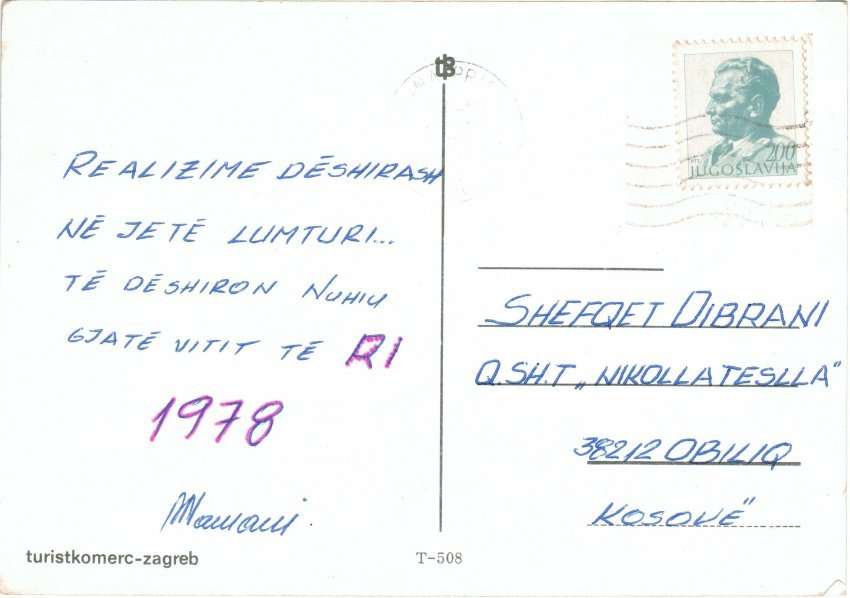 REALIZIME DËSHIRASH
NË JETË LUMTURI...
TË DËSHIRON NUHIU
GJATË VITIT TË RI
1978
turistkomerc-zagreb
T-508
200
JUGOSLAVIJA
SHEFQET DIBRANI
Q.SH.T „NIKOLLATESLLA"
38212 OBILIQ
KOSOVË"